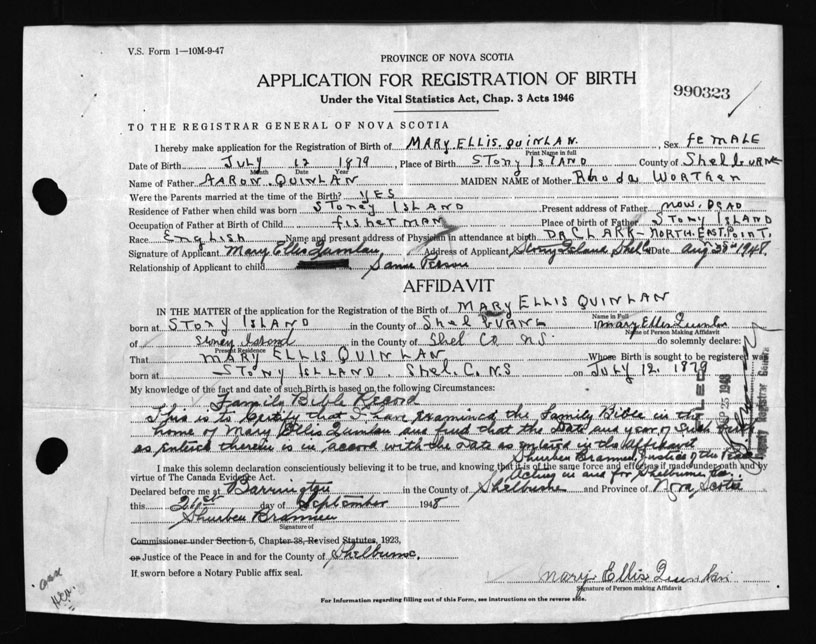 V.S. Form 1—10M-9-47
PROVINCE OF NOVA SCOTIA
APPLICATION FOR REGISTRATION OF BIRTH
990323
Under the Vital Statistics Act, Chap. 3 Acts 1946
TO THE REGISTRAR GENERAL OF NOVA SCOTIA
I hereby make application for the Registration of Birth of MARY ELLIS. QUINLAN. , Sex feMALE
Print Name in full
Date of Birth JULY 12 1879 , Place of Birth STONY ISLAND County of ShelburNE
Month Date Year
Name of Father AARON. QUINLAN MAIDEN NAME of Mother Rhoda WORTHEN
Were the Parents married at the time of the Birth? YES
Residence of Father when child was born STONEY ISLAND Present address of Father NOW. DEAD
Occupation of Father at Birth of Child fisherMAN Place of birth of Father STONY ISLAND
Race English Name and present address of Physician in attendance at birth DR CLARK - NORTH. EAST. POINT.
Signature of Applicant Mary Ellis Quinlan Address of Applicant Stony Island Shel Co Date Aug 28th 1948.
Relationship of Applicant to child Same Person
AFFIDAVIT
IN THE MATTER of the application for the Registration of the Birth of MARY ELLIS QUINLAN
Name in Full
born at STONY ISLAND in the County of ShelBURNE I, Mary Ellis Quinlan
Name of Person Making Affidavit
of Stoney Island in the County of Shel Co N.S. do solemnly declare:
Present Residence
That MARY ELLIS QUINLAN Whose Birth is sought to be registered was
born at STONY ISLLAND. Shel. C. N.S on JULY 12. 1879
My knowledge of the fact and date of such Birth is based on the following Circumstances:
Family Bible Record
This is to certify that I have examined the Family Bible in the
home of Mary Ellis Quinlan and find that the Date and year of such birth
as entered therein is in accord with the date as entered in this Affidavit
Justice of the Peace
I make this solemn declaration conscientiously believing it to be true, and knowing that it is of the same force and effect as if made under oath and by
Acting in and for Shelburne Co.
virtue of The Canada Evidence Act.
Declared before me at Barrington in the County of Shelburne and Province of Nova Scotia
this 21st day of September 1948
Signature of
Commissioner under Section 5, Chapter 38, Revised Statutes, 1923,
or Justice of the Peace in and for the County of Shelburne.
If sworn before a Notary Public affix seal.
Mary Ellis Quinlan
Signature of Person making Affidavit
For Information regarding filling out of this Form, see instructions on the reverse side.